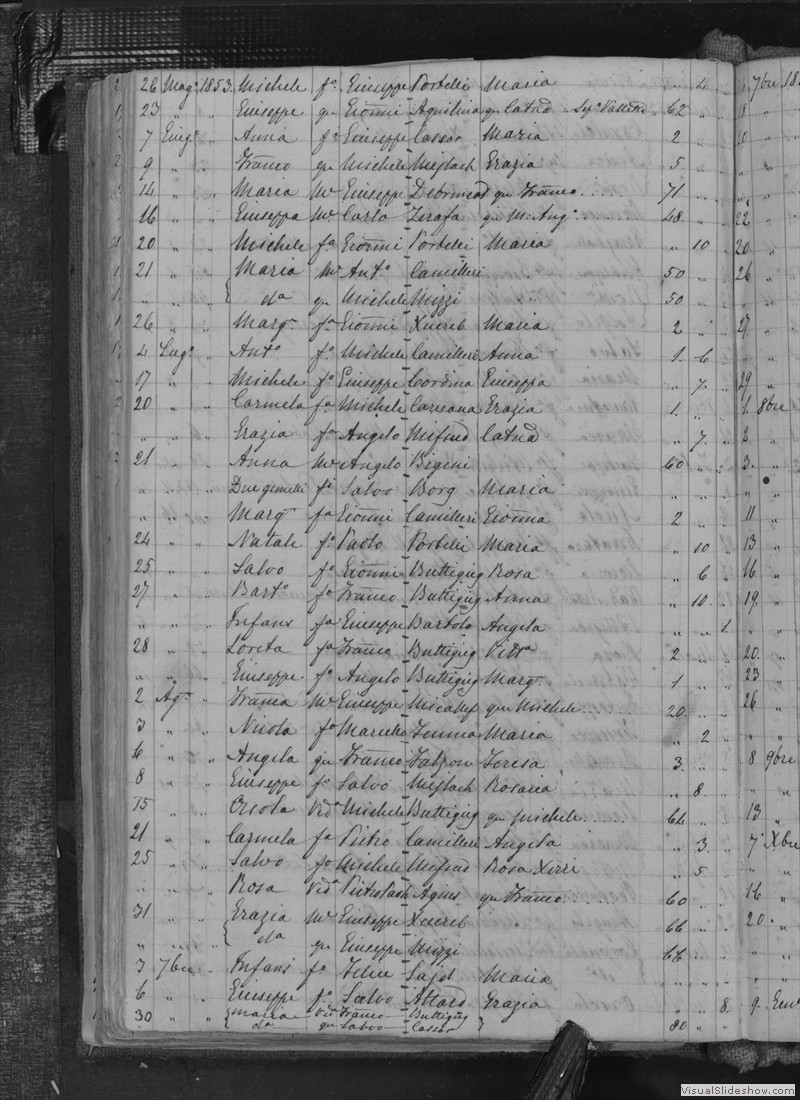 26 Mag: 1853. Michele fo. Giuseppe Portelli Maria " 4 "
23 " " Giuseppe qu Giōnni Aquilina qu Catnō = Sepo. Valletta = 62 " "
7 Giugo. " Anna fa. Giuseppe Cassar Maria 2 " "
9 " " Franco qu Michele Mejlach Grazia 5 " "
14 " " Maria Me Giuseppe Debrincat qu Franco ...... 71 " "
16 " " Giuseppa Me Carlo Zerafa qu M. Ango. ...... 48 " "
20 " " Michele fo. Giōnni Portelli Maria " 10 "
21 " " Maria Me Anto. Camilleri 50 " "
" " " { da qu Michele Mizzi 50 " "
26 " " Marga fa. Giōnni Xuereb Maria 2 " "
4 Lugo. " Anto. fo. Michele Camilleri Anna 1 6 "
17 " " Michele fo. Giuseppe Cordina Giuseppa " 7 "
20 " " Carmela fa. Michele Caruana Grazia 1 " "
" " " Grazia fa. Angelo Mifsud Catnā " 7 "
21 " " Anna Me Angelo 60 " "
" " " Due gemelli fi. Salvo Borg Maria
" " " Marga fa. Giōnni Camilleri Giōnna 2 " "
24 " " Natale fo. Paolo Portelli Maria " 10 "
25 " " Salvo fo. Giōnni Buttigieg Rosa " 6 "
27 " " Barto. fo. Franco Buttigieg Anna " 10 "
" " " Infans fa. Giuseppe Bartolo Angela " " 1
28 " " Loreta fa. Franco Buttigieg Vitta 2 " "
" " " Giuseppe fo. Angelo Buttigieg Marga 1 " "
2 Ago. " Franca Me Giuseppe Micallef qu Michele ...... 20 " "
3 " " Nicola fo. Marcello Maria " 2 "
6 " " Angela qu Franco Falzon Teresa 3 " "
8 " " Giuseppe fo. Salvo Mejlach Rosaria " 8 "
15 " " Orsola Vida Michele Buttigieg qu Michele ...... 64 " "
21 " " Carmela fa. Pietro Camilleri Angela " 3 "
25 " " Salvo fo. Michele Mifsud Rosa Xirri " 5 "
" " " Rosa Vida Agius qu Franco ...... 60 " "
31 " " Grazia Me Giuseppe Xuereb 66 " "
" " " { da qu Giuseppe Mizzi 66 " "
3 7bre " Infans fo. Felice Sajd Maria " " "
6 " " Giuseppe fo. Salvo Attard Grazia " " 8
30 " " { Maria Vida Franco Buttigieg
da qu Salvo Cassar } 80 " "
7bre 18
20
22
20
26
27
29
1 8bre
2
3
11
13
16
19
20
23
26
8 9bre
13
7 Xbre
16
20
9 Genn
VisualSlideshow.com